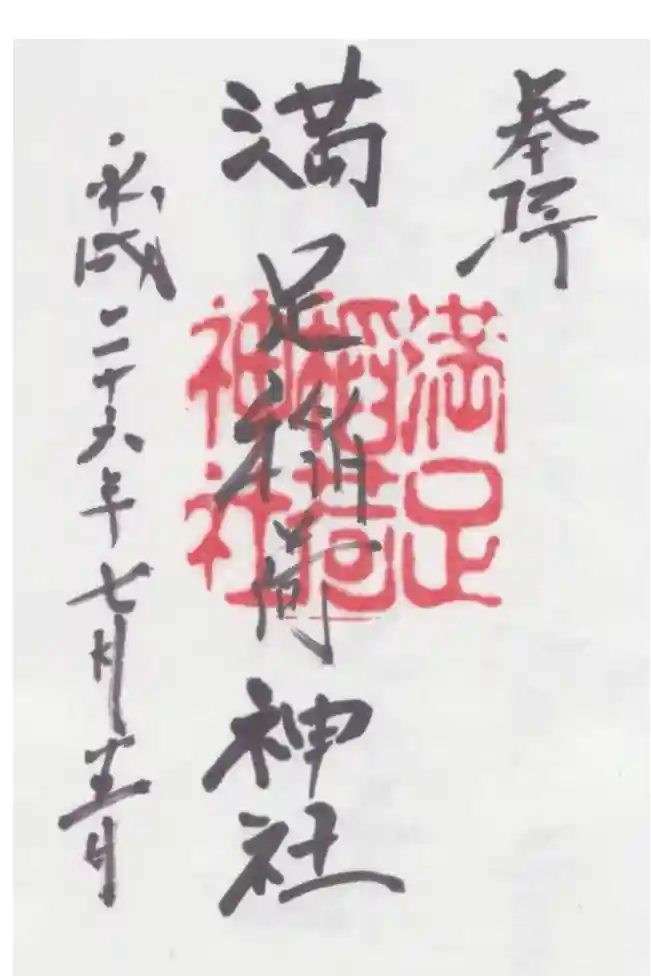 奉拝
満足稲荷神社
満足
稲荷
神社
平成二十六年七月十五日